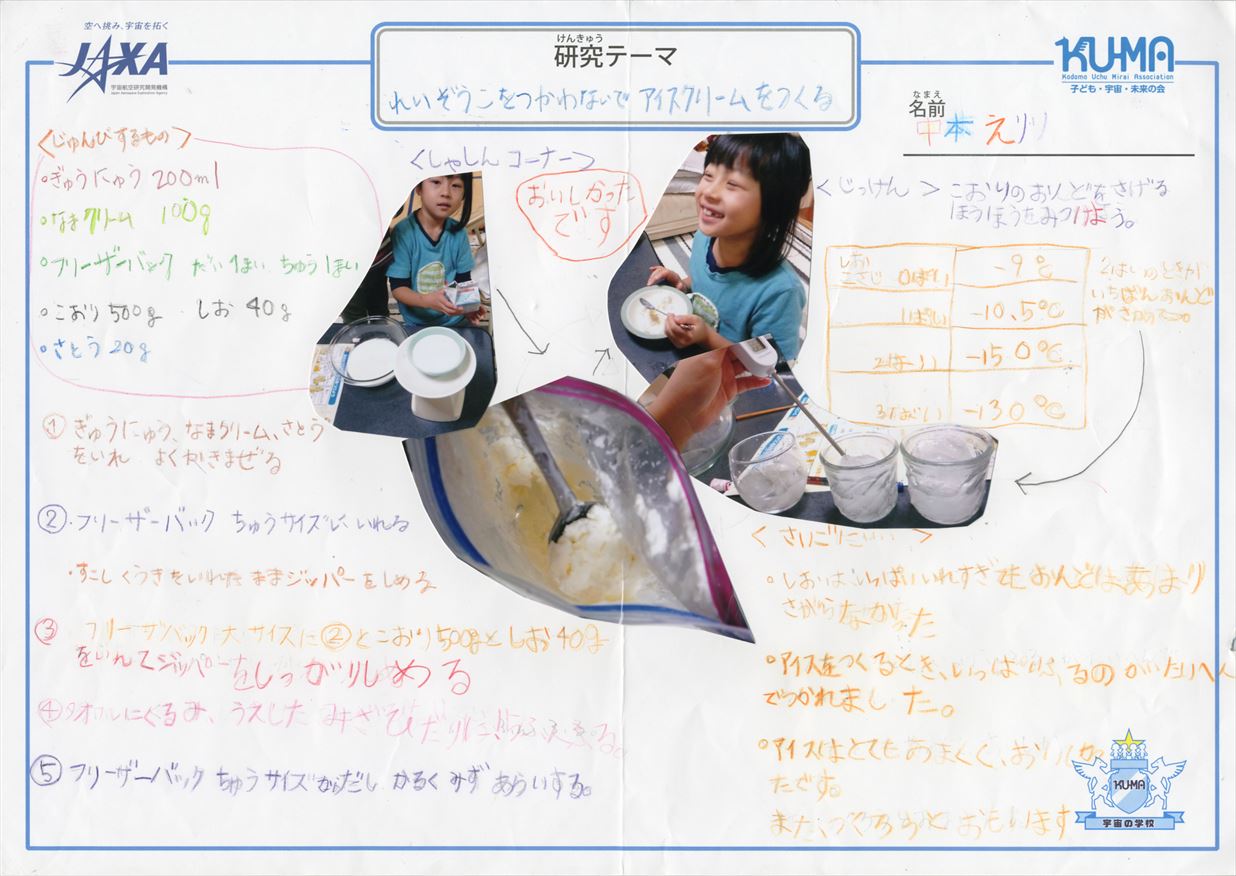 空へ挑み、宇宙を拓く
JAXA
宇宙航空研究開発機構
Japan Aerospace Exploration Agency
けんきゅう
研究テーマ
れいぞうこをつかわないでアイスクリームをつくる
KU-MA
Kodomo Uchu Mirai Association
子ども・宇宙・未来の会
なまえ
名前
中本 えりり
<じゅんびするもの>
・ぎゅうにゅう 200ml
・なまクリーム 100g
・フリーザーバック だい1まい ちゅう1まい
・こおり500g ・しお 40g
・さとう20g
① ぎゅうにゅう、なまクリーム、さとう
をいれ よくかきまぜる
②・フリーザーバック ちゅうサイズに いれる
・すこしくうきをいれたままジッパーをしめる
③ フリーザバック大サイズに②とこおり500gとしお40g
をいれてジッパーをしっかりしめる
④タオルにくるみ、うえした みぎひだりに
⑤フリーザーバック ちゅうサイズ だし かるくみずあらいする。
<しゃしんコーナー>
おいしかった
です
<じっけん> こおりのおんどをさげる
ほうほうをみつけよう。
しお
こさじ 0ぱい -9℃
1ぱい -10.5℃
2はい -15.0℃
3ばい -13.0℃
2はいのときが
いちばんおんど
がさがった。
<さいごに>
・しおはいっぱいいれすぎてもおんどはあまり
さがらなかった
・アイスをつくるとき、いっぱい ふるのがたいへん
でつかれました。
・アイスはとてもあまくて、おいし
たです。
また、つくろうとおもいます
KU-MA
宇宙の学校